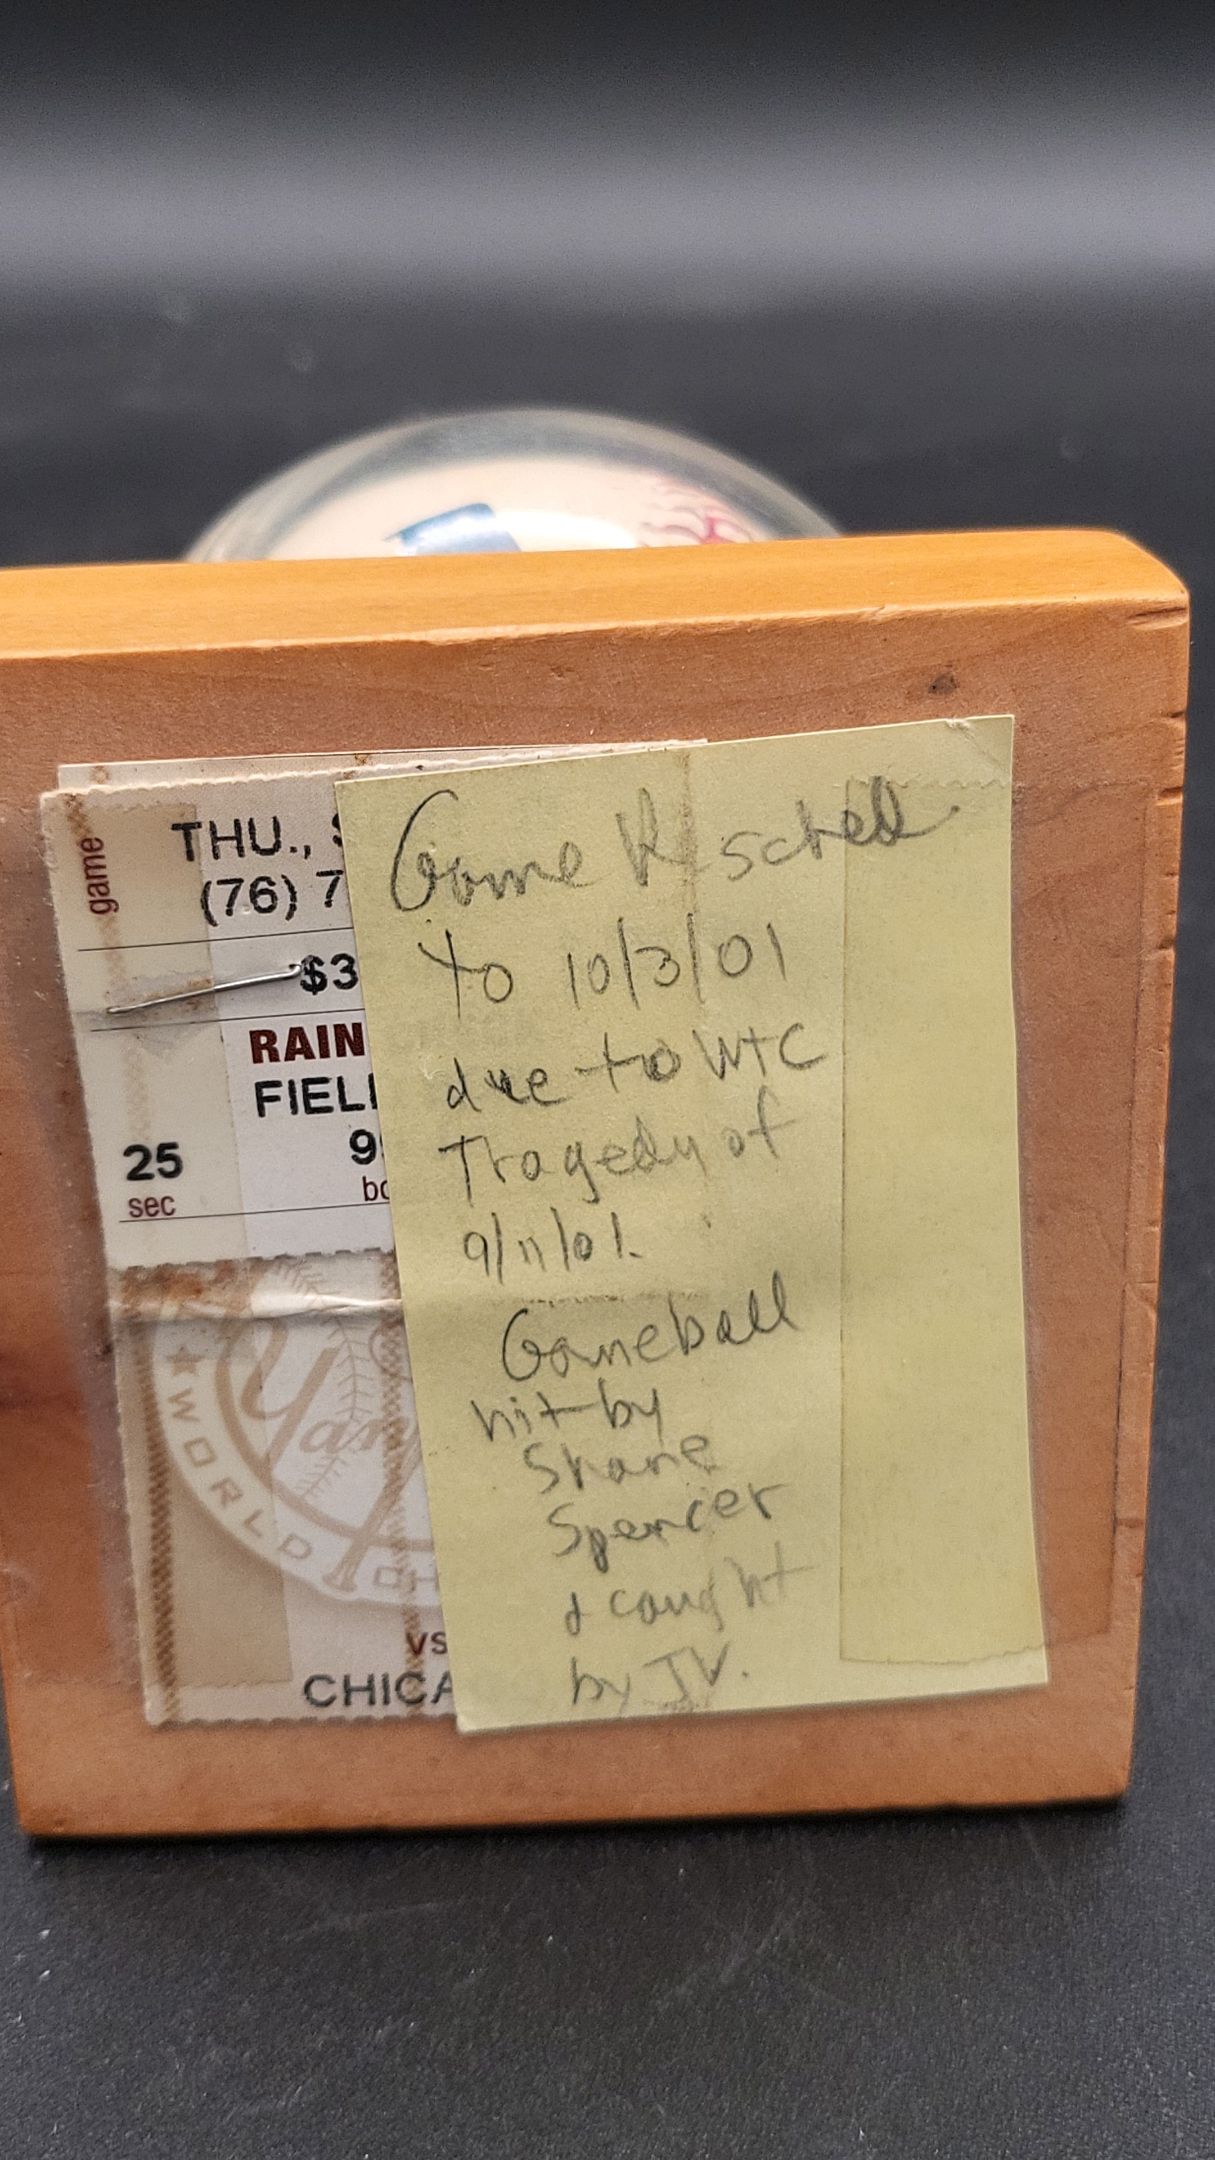 game
THU.,
(76) 7
$3
RAIN
FIEL
25
sec
Yan
WORLD CH
vs
CHICA
Game Resched
to 10/3/01
due to WTC
Tragedy of
9/11/01.
Gameball
hit by
Shane
Spencer
& caught
by JV.